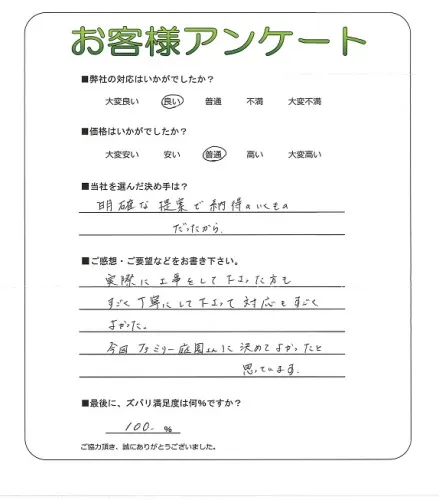 お客様アンケート
■弊社の対応はいかがでしたか?
大変良い 良い 普通 不満 大変不満
■価格はいかがでしたか?
大変安い 安い 普通 高い 大変高い
■当社を選んだ決め手は?
明確な提案で納得のいくもの
だったから。
■ご感想・ご要望などをお書き下さい。
実際に工事をして下さった方も
すごく丁寧にして下さって対応もすごく
よかった。
今回ファミリー庭園さんに決めてよかったと
思っています。
■最後に、ズバリ満足度は何%ですか?
100. %
ご協力頂き、誠にありがとうございました。